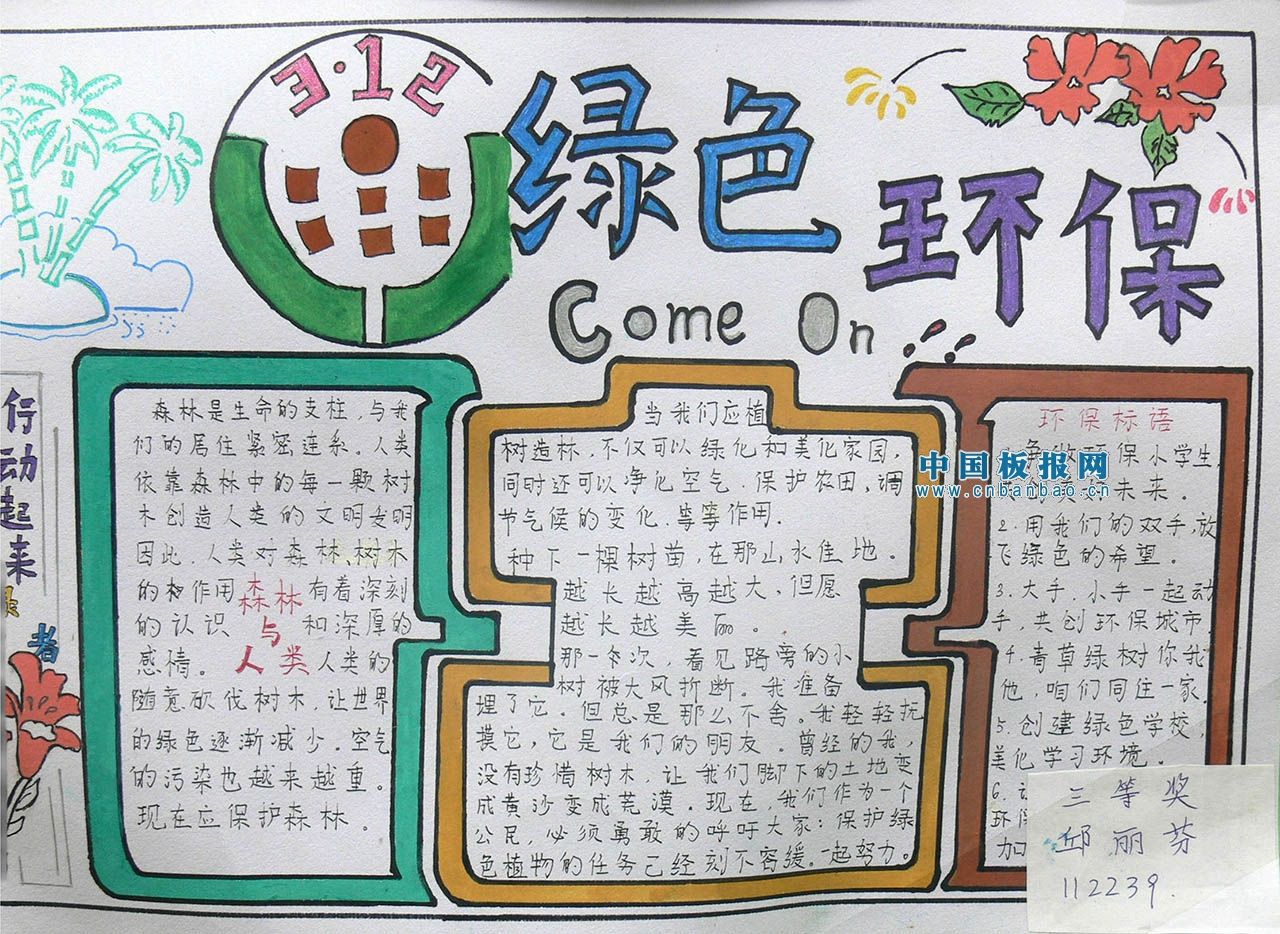 3·12
绿色
环保
Come On
行动起来
者
森林是生命的支柱,与我
们的居住紧密连系。人类
依靠森林中的每一颗树
木创造人类的文明发明
因此,人类对森林、树木
的作用 有着深刻
的认识 和深厚的
感情。 人类的
森林
与
人类
随意砍伐树木,让世界
的绿色逐渐减少。空气
的污染也越来越重。
现在应保护森林。
当我们应植
树造林,不仅可以绿化和美化家园,
同时还可以净化空气、保护农田,调
节气候的变化、等等作用.
种下一棵树苗,在那山水佳地。
越长越高越大,但愿
越长越美丽。
那一次,看见路旁的小
树被大风折断。我准备
埋了它。但总是那么不舍。我轻轻抚
摸它,它是我们的朋友。曾经的我,
没有珍惜树木,让我们脚下的土地变
成黄沙变成荒漠。现在,我们作为一个
公民,必须勇敢的呼吁大家:保护绿
色植物的任务已经刻不容缓。一起努力。
环保标语
保小学生,
未来。
2.用我们的双手,放
飞绿色的希望。
3.大手、小手一起动
手,共创环保城市,
4.青草绿树你我
他,咱们同住一家,
5.创建绿色学校,
美化学习环境。
6.
环保
加
中国板报网
www.cnbanbao.cn
三等奖
邱丽芬
112239.